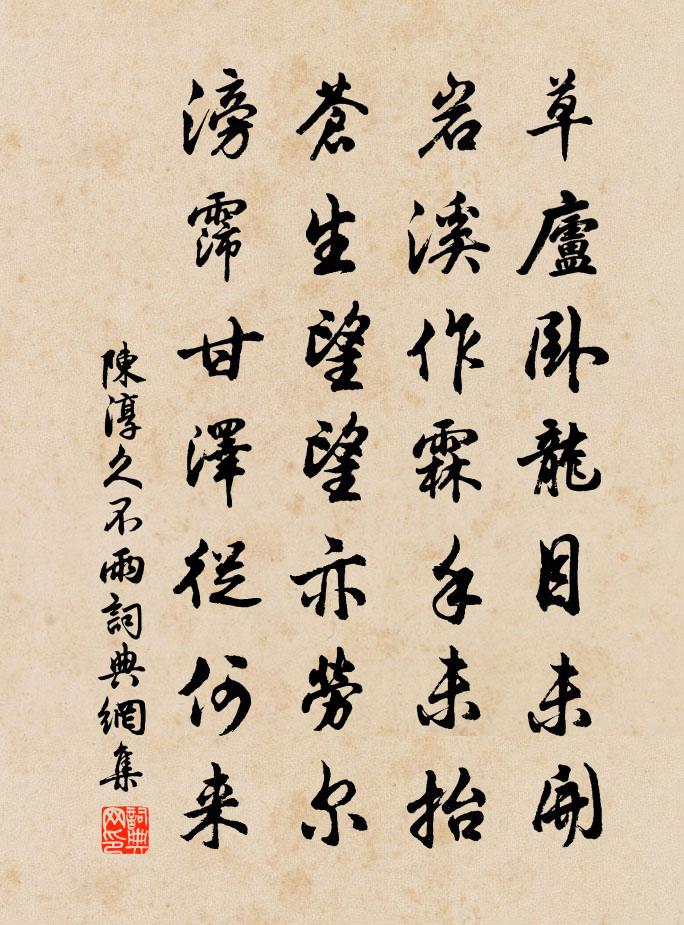 草廬卧龍目未開
岩溪作霖手未抬
蒼生望望亦勞尔
滂霈甘澤從何来
陳淳久不雨詞典網集
詞典网印